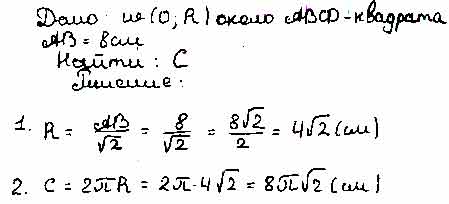 Дано: (O; R) около ABCD-квадрата
AB = 8 см
Найти: C
Решение:
1. R = AB/√2 = 8/√2 = 8√2/2 = 4√2 (см)
2. C = 2πR = 2π·4√2 = 8π√2 (см)